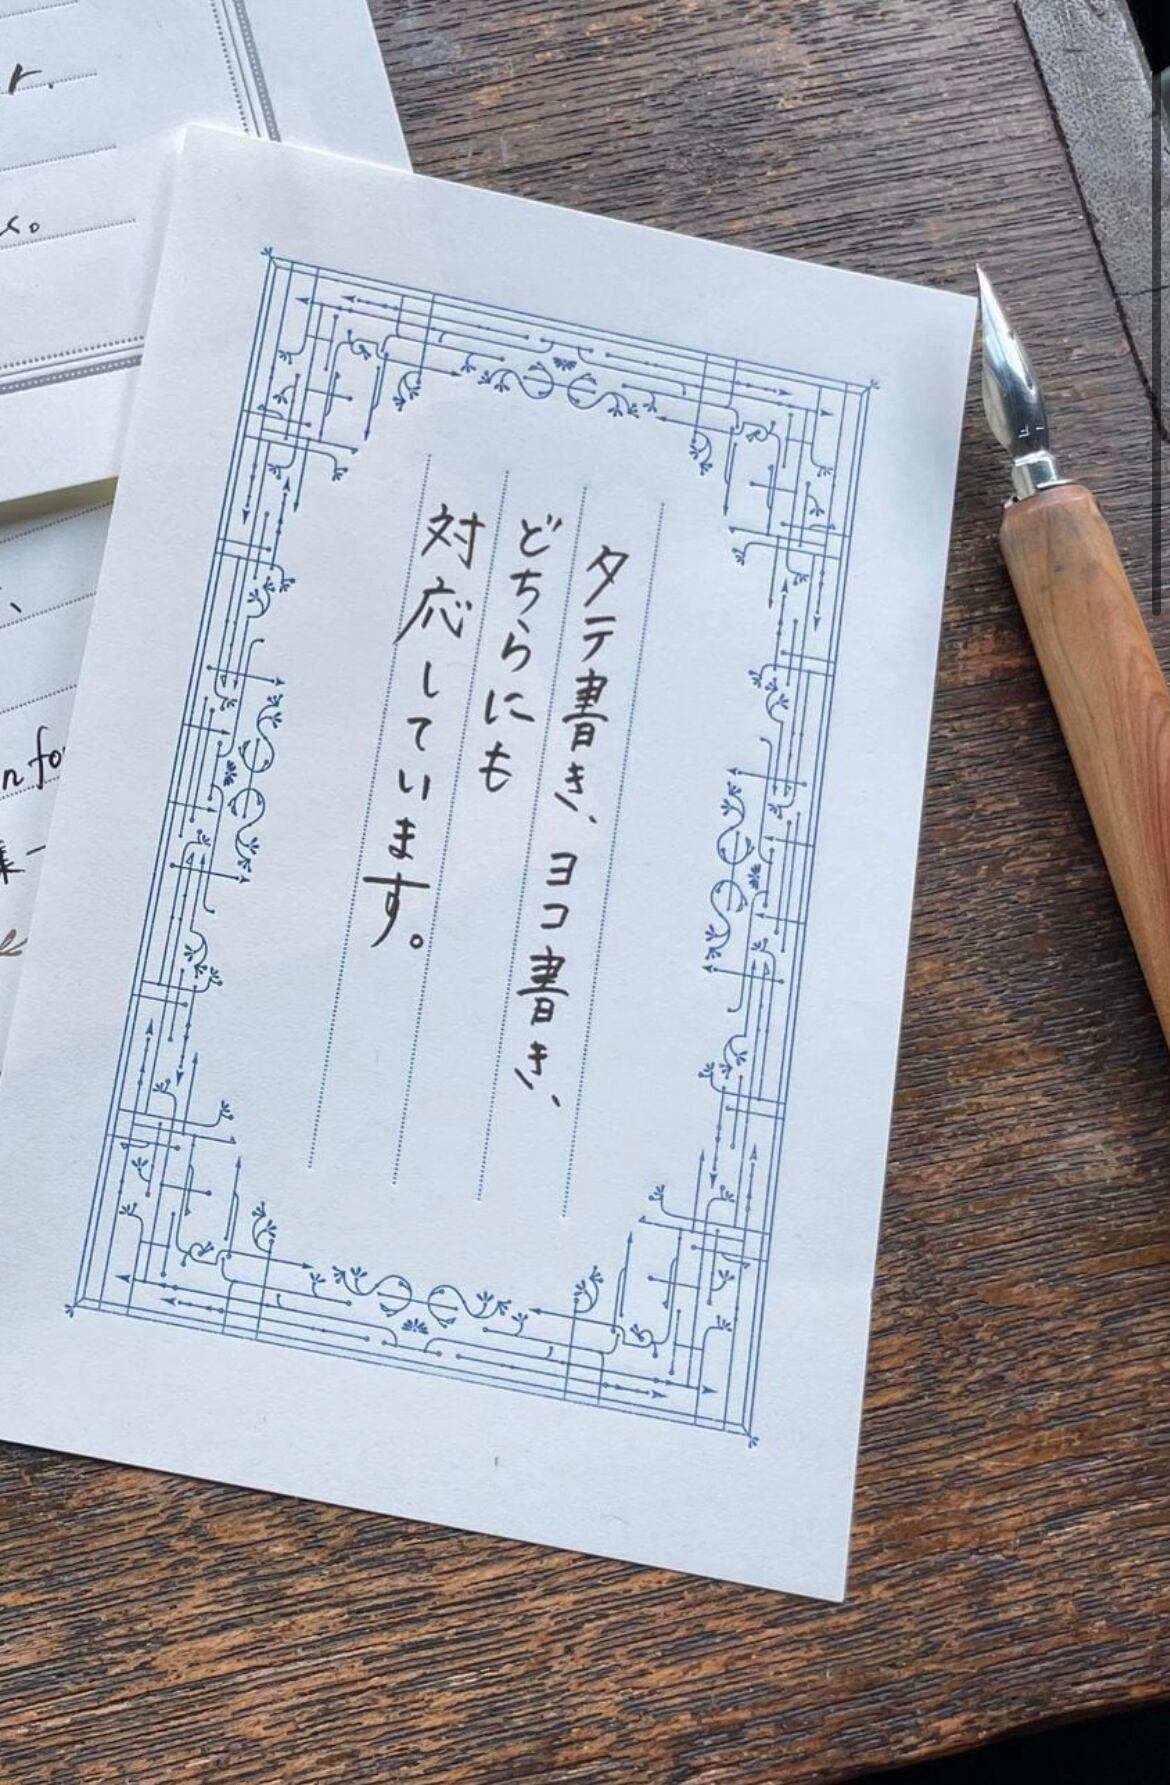 タテ書き、ヨコ書き、
どちらにも
対応しています。
r.